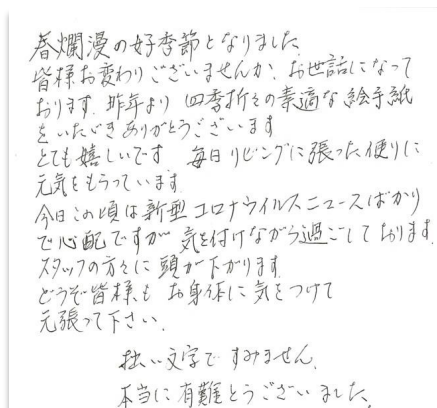 春爛漫の好季節となりました
皆様お変わりございませんか、お世話になって
おります。昨年より 四季折々の素適な絵手紙
をいただきありがとうございます
とても嬉しいです 毎日リビングに張った便りに
元気をもらっています
今日この頃は新型コロナウイルスニュースばかり
で心配ですが 気を付けながら過ごしております。
スタッフの方々に頭が下がります。
どうぞ皆様も お身体に気をつけて
元張って下さい。
拙い文字ですみません。
本当に有難とうございました。